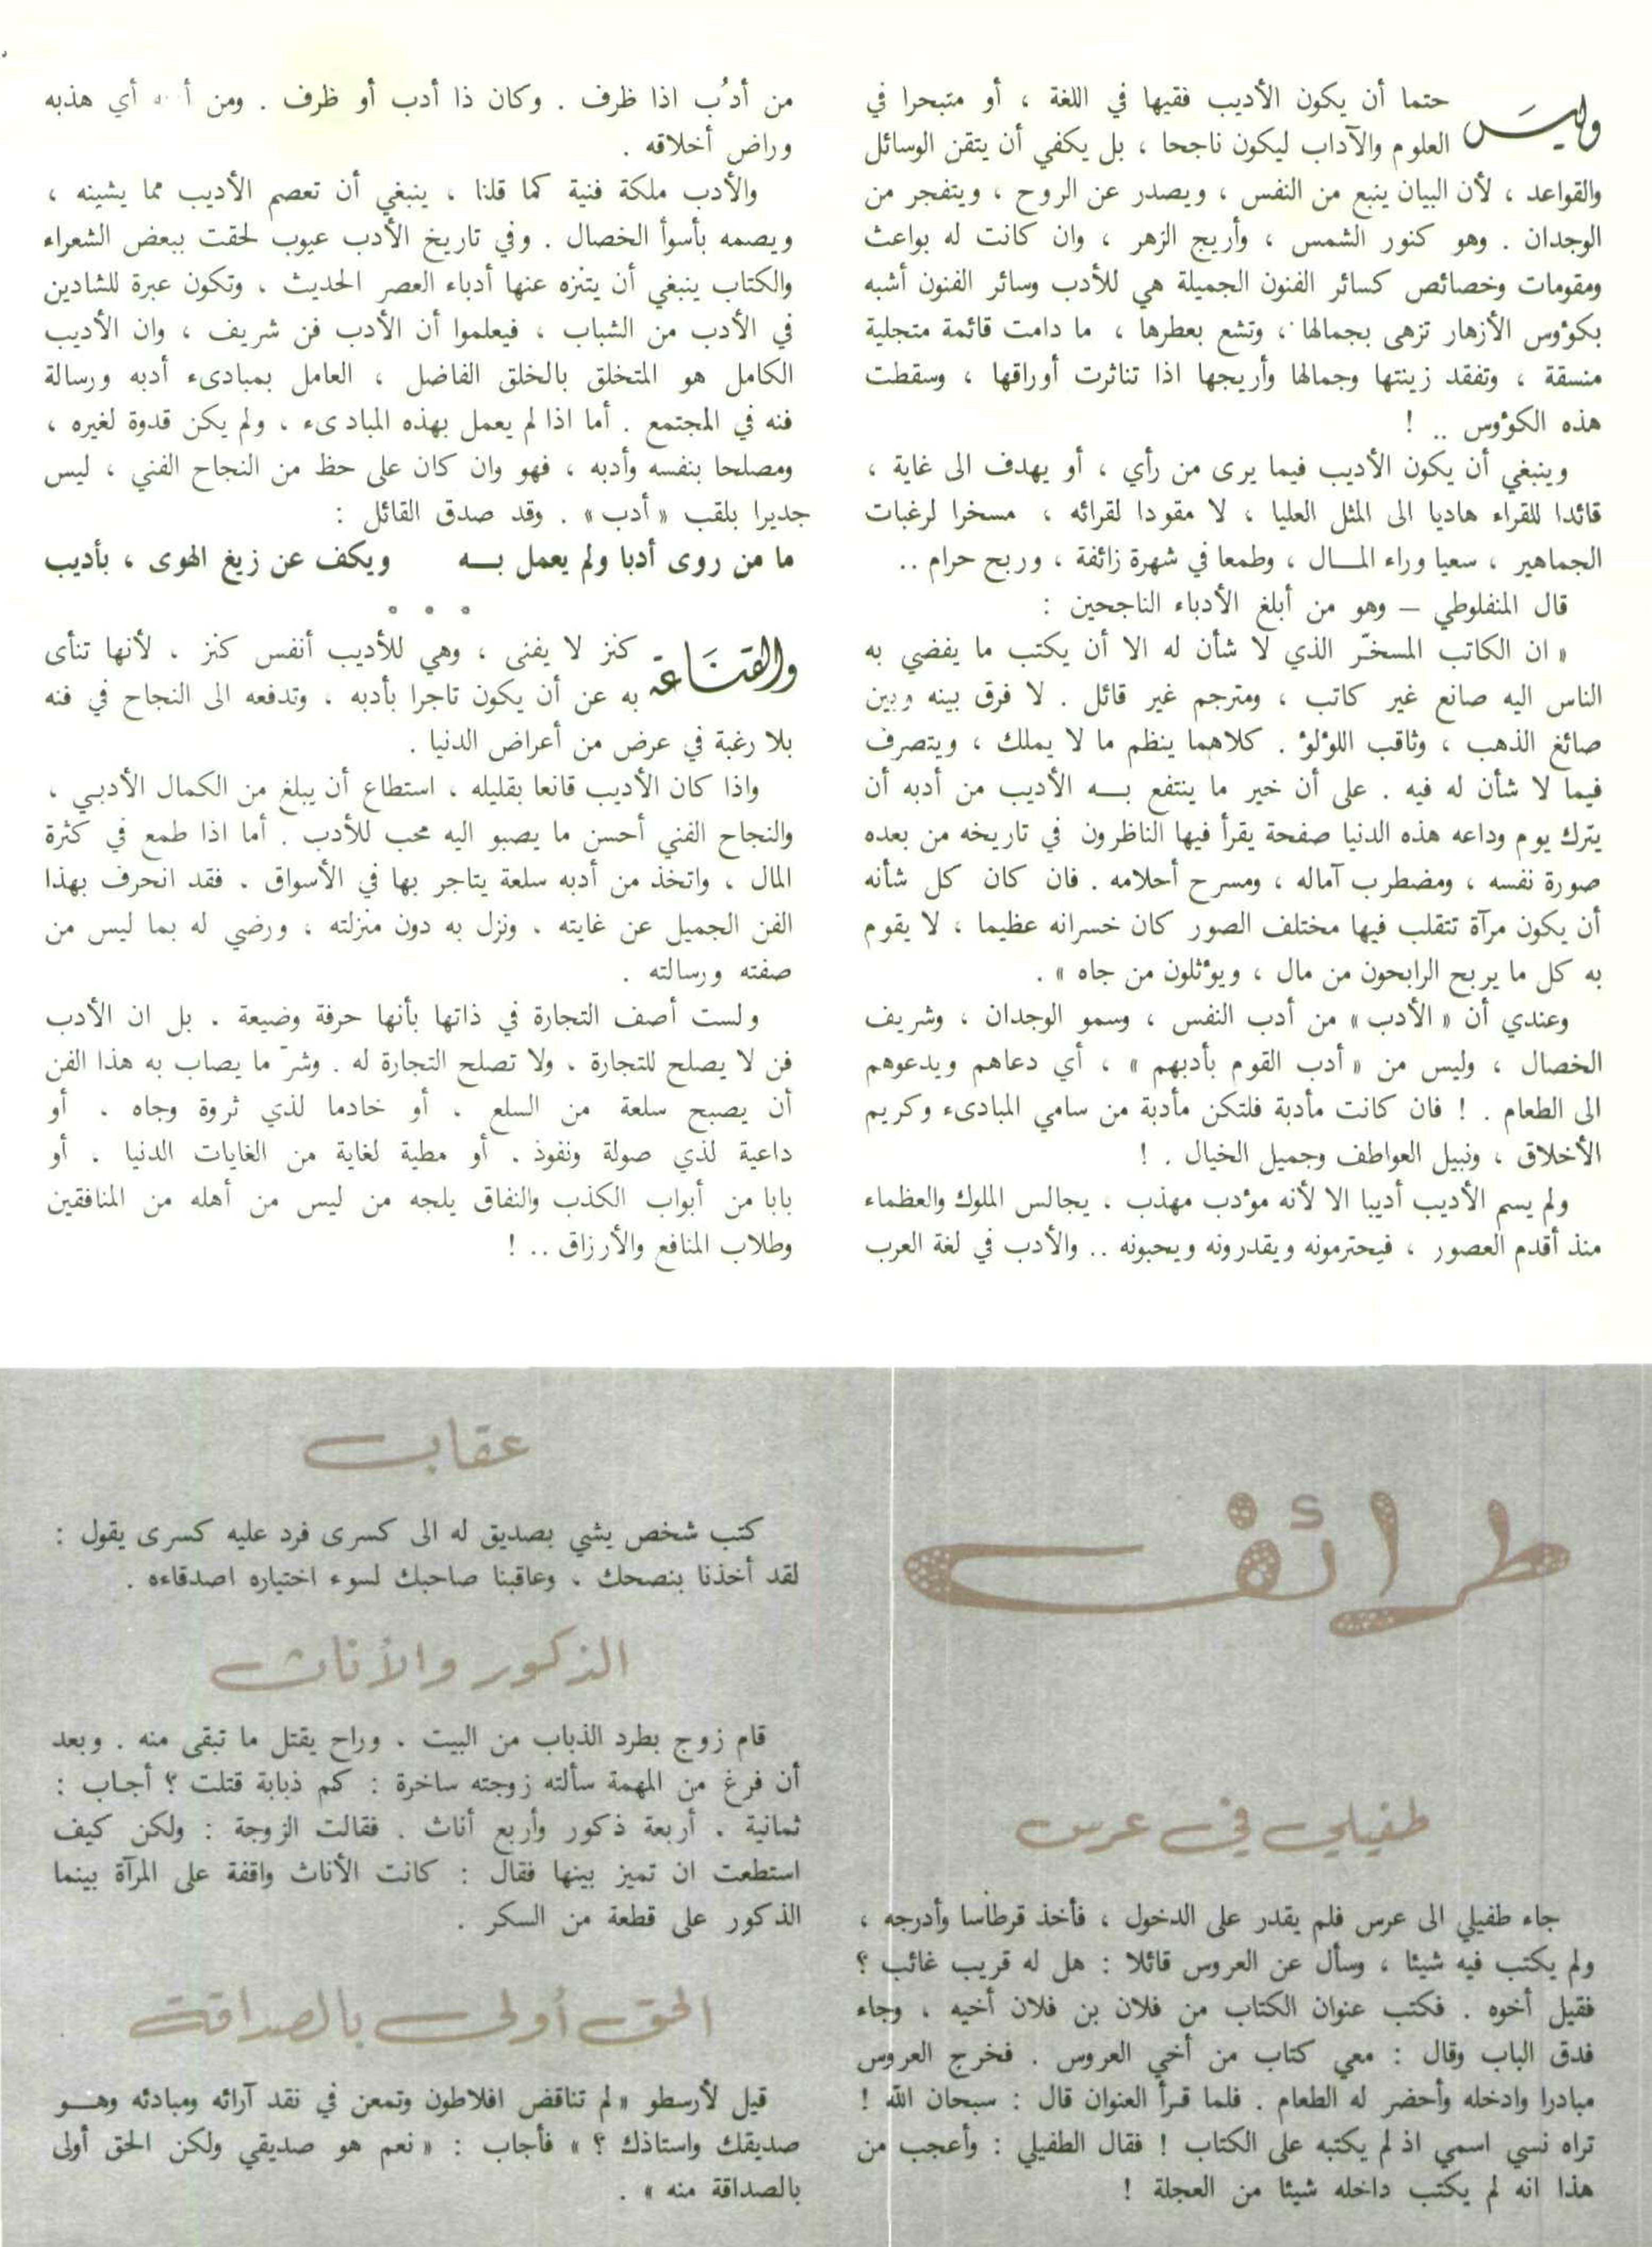 وليس حتما أن يكون الأديب فقيها في اللغة ، أو متبحرا في
العلوم والآداب ليكون ناجحا ، بل يكفي أن يتقن الوسائل
والقواعد ، لأن البيان ينبع من النفس ، ويصدر عن الروح ، ويتفجر من
الوجدان . وهو كنور الشمس ، وأريج الزهر ، وان كانت له بواعث
ومقومات وخصائص كسائر الفنون الجميلة هي للأدب وسائر الفنون أشبه
بكؤوس الأزهار تزهى بجمالها ، وتشع بعطرها ، ما دامت قائمة متجلية
منسقة ، وتفقد زينتها وجمالها وأريجها اذا تناثرت أوراقها ، وسقطت
هذه الكؤوس .. !
وينبغي أن يكون الأديب فيما يرى من رأي ، أو يهدف الى غاية ،
قائدا للقراء هاديا الى المثل العليا ، لا مقودا لقرائه ، مسخرا لرغبات
الجماهير ، سعيا وراء المـال ، وطمعا في شهرة زائفة ، وربح حرام ..
قال المنفلوطي – وهو من أبلغ الأدباء الناجحين :
« ان الكاتب المسخّر الذي لا شأن له الا أن يكتب ما يفضي به
الناس اليه صانع غير كاتب ، ومترجم غير قائل . لا فرق بينه وبين
صائغ الذهب ، وثاقب اللؤلؤ . كلاهما ينظم ما لا يملك ، ويتصرف
فيما لا شأن له فيه . على أن خير ما ينتفع بـه الأديب من أدبه أن
يترك يوم وداعه هذه الدنيا صفحة يقرأ فيها الناظرون في تاريخه من بعده
صورة نفسه ، ومضطرب آماله ، ومسرح أحلامه . فان كان كل شأنه
أن يكون مرآة تتقلب فيها مختلف الصور كان خسرانه عظيما ، لا يقوم
به كل ما يربح الرابحون من مال ، ويؤثلون من جاه » .
وعندي أن « الأدب » من أدب النفس ، وسمو الوجدان ، وشريف
الخصال ، وليس من « أدب القوم بأدبهم » ، أي دعاهم ويدعوهم
الى الطعام . ! فان كانت مأدبة فلتكن مأدبة من سامي المبادىء وكريم
الأخلاق ، ونبيل العواطف وجميل الخيال . !
ولم يسم الأديب أديبا الا لأنه مؤدب مهذب ، يجالس الملوك والعظماء
منذ أقدم العصور ، فيحترمونه ويقدرونه ويحبونه .. والأدب في لغة العرب
من أدُب اذا ظرف . وكان ذا أدب أو ظرف . ومن أي هذبه
وراض أخلاقه .
والأدب ملكة فنية كما قلنا ، ينبغي أن تعصم الأديب مما يشينه ،
ويصمه بأسوأ الخصال . وفي تاريخ الأدب عيوب لحقت ببعض الشعراء
والكتاب ينبغي أن يتنزه عنها أدباء العصر الحديث ، وتكون عبرة للشادين
في الأدب من الشباب ، فيعلموا أن الأدب فن شريف ، وان الأديب
الكامل هو المتخلق بالخلق الفاضل ، العامل بمبادىء أدبه ورسالة
فنه في المجتمع . أما اذا لم يعمل بهذه المبادىء ، ولم يكن قدوة لغيره ،
ومصلحا بنفسه وأدبه ، فهو وان كان على حظ من النجاح الفني ، ليس
جديرا بلقب « أدب » . وقد صدق القائل :
ما من روى أدبا ولم يعمل بـه ويكف عن زيغ الهوى ، بأديب
° ° °
والقناعة كنز لا يفنى ، وهي للأديب أنفس كنز ، لأنها تنأى
به عن أن يكون تاجرا بأدبه ، وتدفعه الى النجاح في فنه
بلا رغبة في عرض من أعراض الدنيا .
واذا كان الأديب قانعا بقليله ، استطاع أن يبلغ من الكمال الأدبي ،
والنجاح الفني أحسن ما يصبو اليه محب للأدب . أما اذا طمع في كثرة
المال ، واتخذ من أدبه سلعة يتاجر بها في الأسواق ، فقد انحرف بهذا
الفن الجميل عن غايته ، ونزل به دون منزلته ، ورضي له بما ليس من
صفته ورسالته .
ولست أصف التجارة في ذاتها بأنها حرفة وضيعة . بل ان الأدب
فن لا يصلح للتجارة ، ولا تصلح التجارة له . وشرّ ما يصاب به هذا الفن
أن يصبح سلعة من السلع ، أو خادما لذي ثروة وجاه ، أو
داعية لذي صولة ونفوذ ، أو مطية لغاية من الغايات الدنيا ، أو
بابا من أبواب الكذب والنفاق يلجه من ليس من أهله من المنافقين
وطلاب المنافع والأرزاق .. !
طرائف
طفيلي في عرس
جاء طفيلي الى عرس فلم يقدر على الدخول ، فأخذ قرطاسا وأدرجه ،
ولم يكتب فيه شيئا ، وسأل عن العروس قائلا : هل له قريب غائب ؟
فقيل أخوه . فكتب عنوان الكتاب من فلان بن فلان أخيه ، وجاء
فدق الباب وقال : معي كتاب من أخي العروس . فخرج العروس
مبادرا وادخله وأحضر له الطعام . فلما قرأ العنوان قال : سبحان الله !
تراه نسي اسمي اذ لم يكتبه على الكتاب ! فقال الطفيلي : وأعجب من
هذا انه لم يكتب داخله شيئا من العجلة !
عقاب
كتب شخص يشي بصديق له الى كسرى فرد عليه كسرى يقول :
لقد أخذنا بنصحك ، وعاقبنا صاحبك لسوء اختياره اصدقاءه .
الذكور والأناث
قام زوج بطرد الذباب من البيت ، وراح يقتل ما تبقى منه . وبعد
أن فرغ من المهمة سألته زوجته ساخرة : كم ذبابة قتلت ؟ أجاب :
ثمانية ، أربعة ذكور وأربع أناث . فقالت الزوجة : ولكن كيف
استطعت ان تميز بينها فقال : كانت الأناث واقفة على المرآة بينما
الذكور على قطعة من السكر .
الحق أولى بالصداقة
قيل لأرسطو « لم تناقض افلاطون وتمعن في نقد آرائه ومبادئه وهـو
صديقك واستاذك ؟ » فأجاب : « نعم هو صديقي ولكن الحق أولى
بالصداقة منه » .